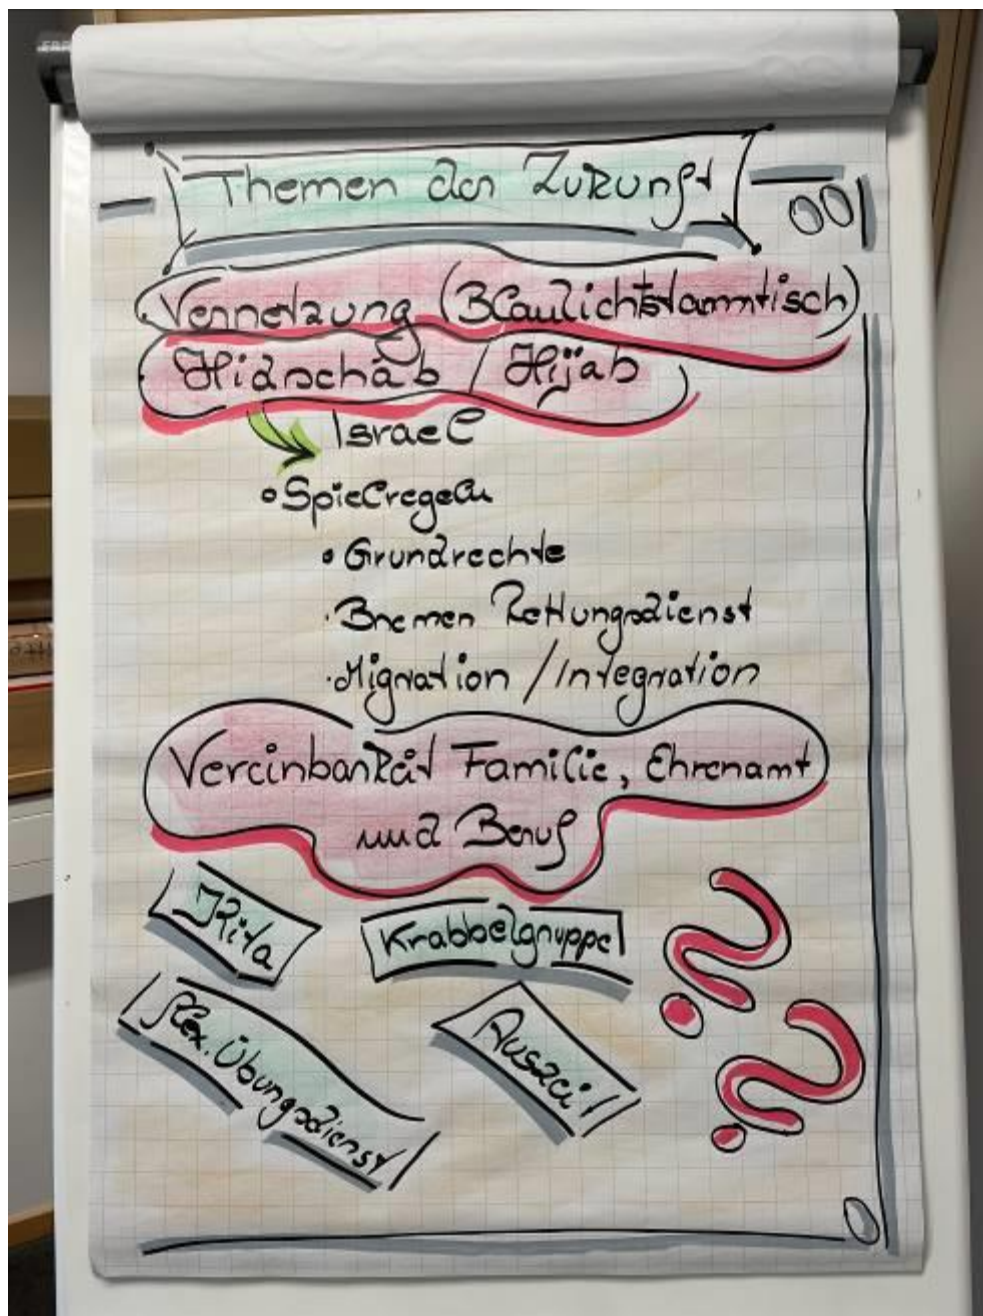 Themen der Zukunft
Vernetzung (Blaulichtstammtisch)
Hidschab / Hijab
Israel
• Spielregeln
• Grundrechte
· Bremen Rettungsdienst
· Migration / Integration
Vereinbarkeit Familie, Ehrenamt
und Beruf
Kita
Krabbelgruppe
flex. Übungsdienst
Auszeit